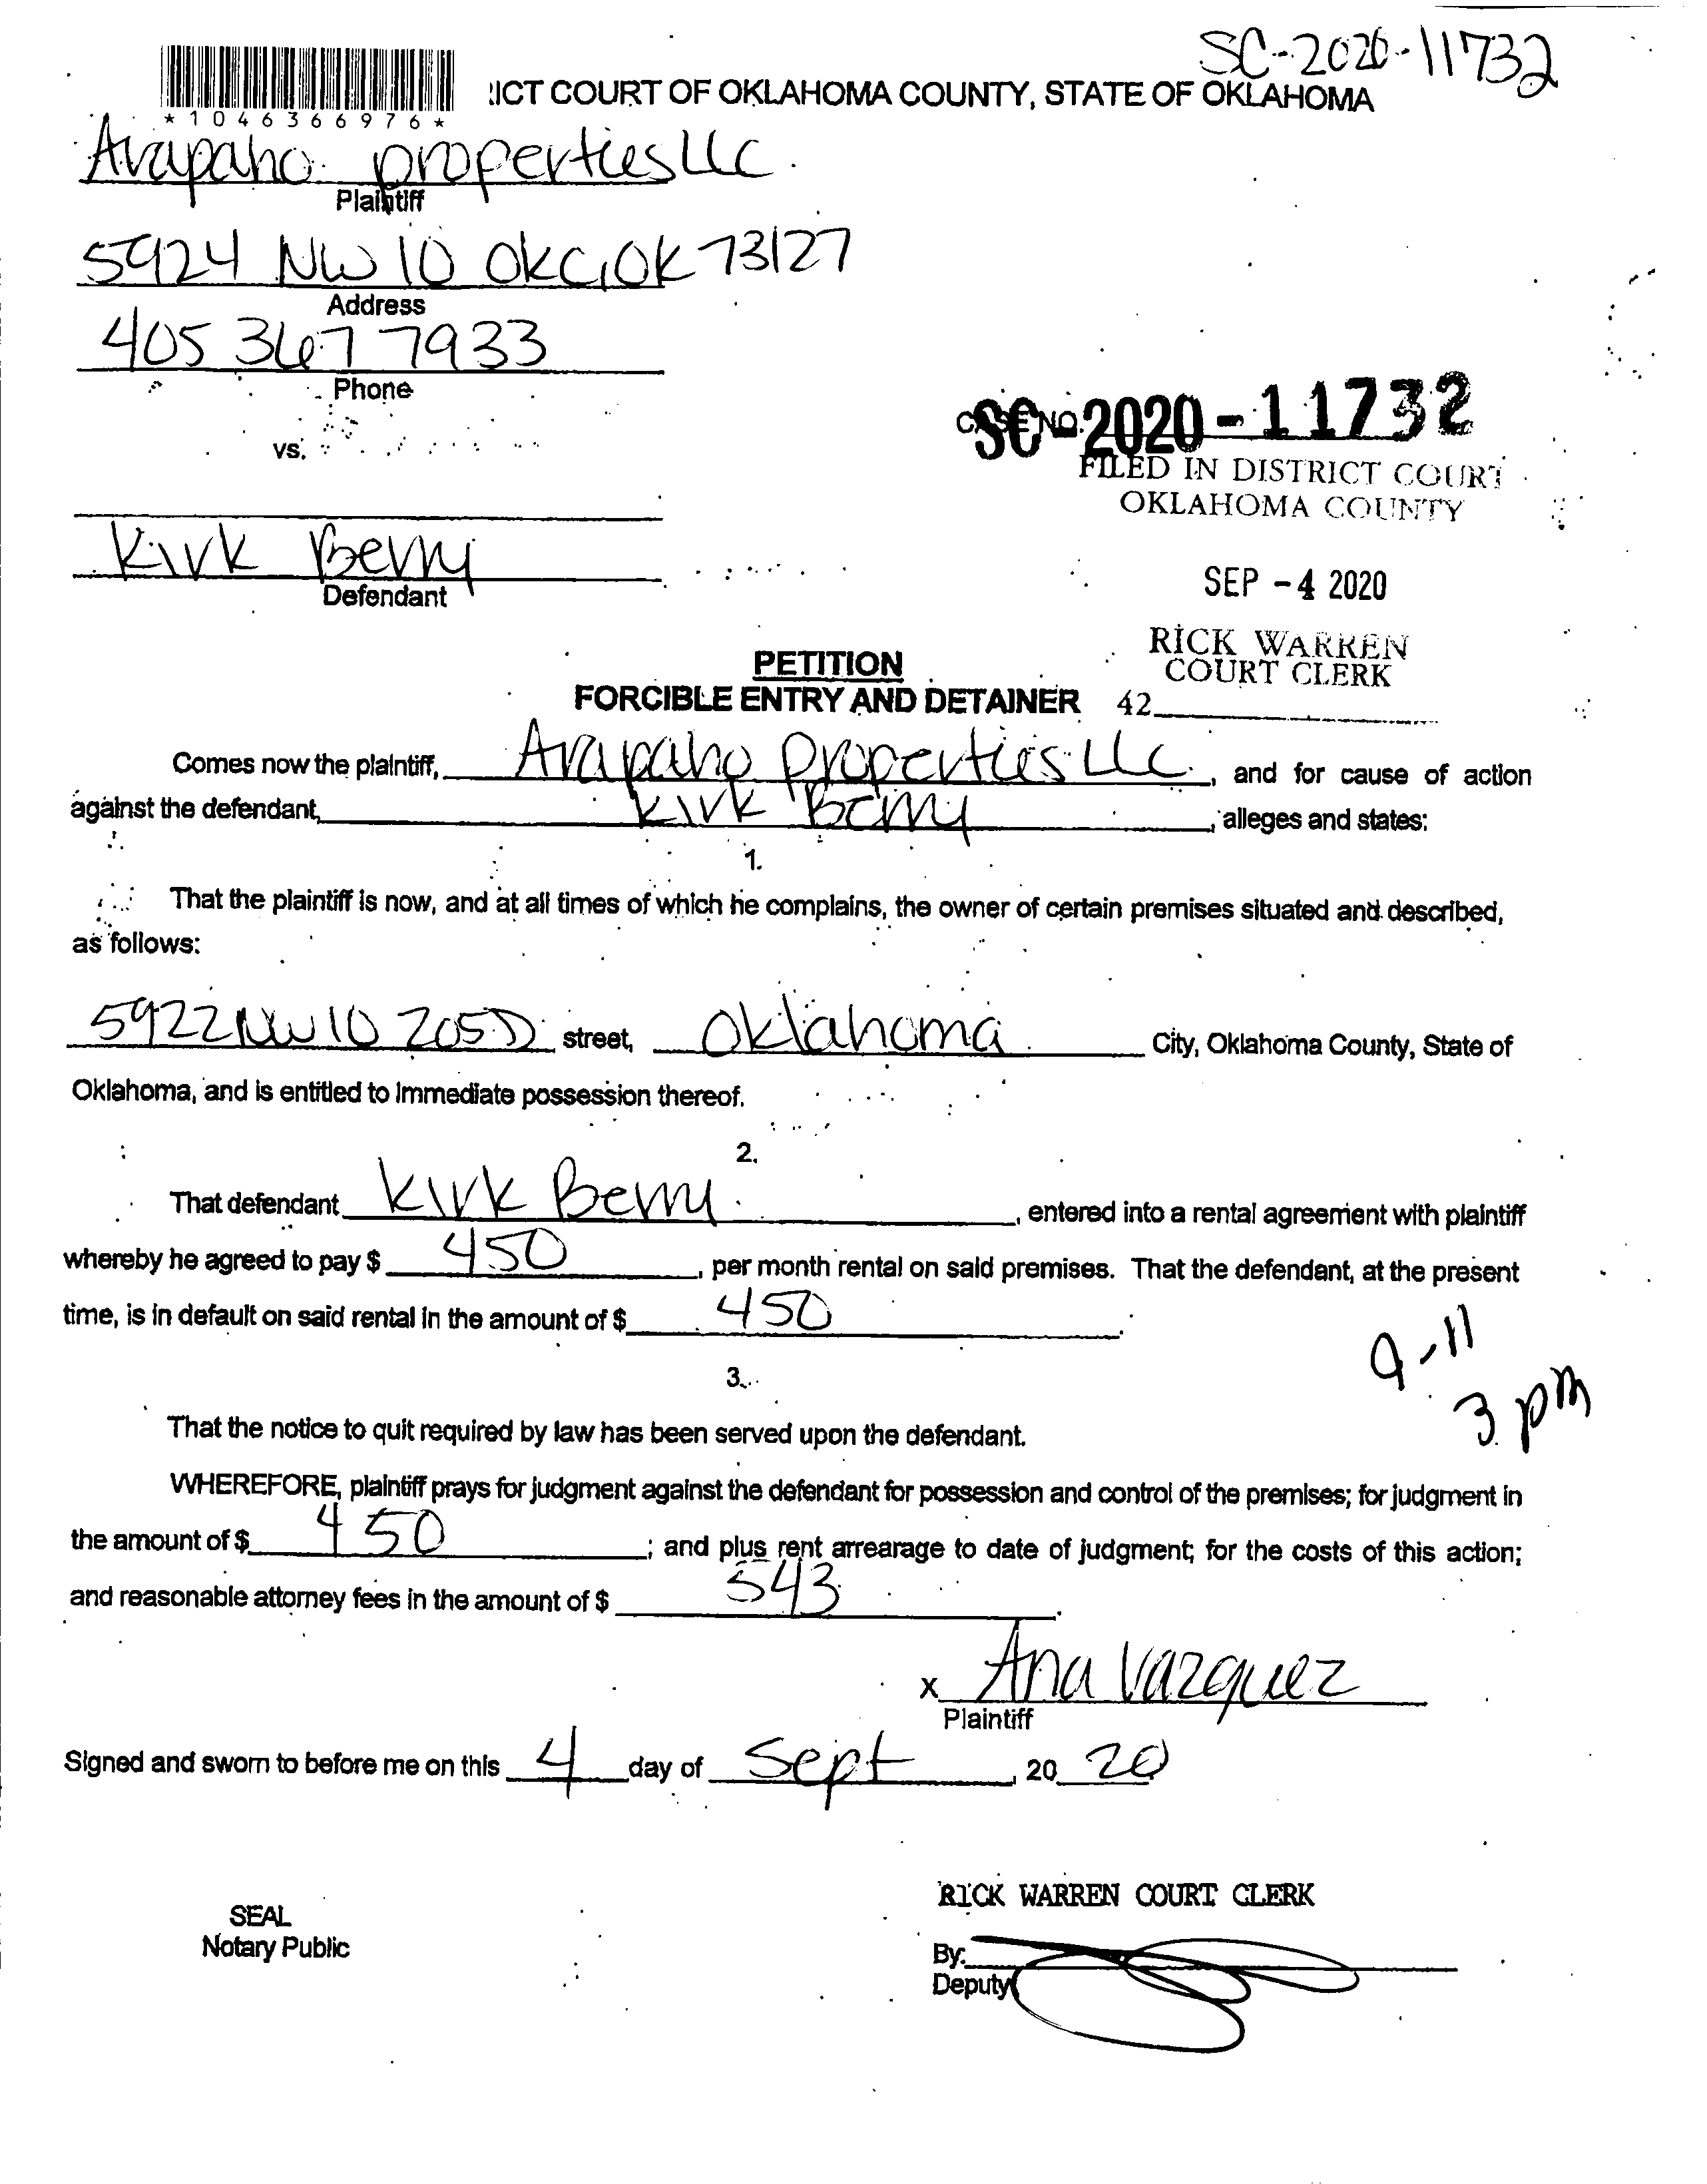 SC-2020-11732
ICT COURT OF OKLAHOMA COUNTY, STATE OF OKLAHOMA
*1046366976*
Arapaho properties LLC
Plaintiff
5924 NW 10 OKC, OK 73127
Address
405 367 7933
Phone
vs.
CASE NO. SC-2020-11732
FILED IN DISTRICT COURT
OKLAHOMA COUNTY
Kirk Berry
Defendant
SEP -4 2020
RICK WARREN
COURT CLERK
42
PETITION
FORCIBLE ENTRY AND DETAINER
Comes now the plaintiff, Arapaho Properties LLC, and for cause of action
against the defendant, Kirk Berry, alleges and states:
1.
That the plaintiff is now, and at all times of which he complains, the owner of certain premises situated and described,
as follows:
5922 NW 10 205D street, Oklahoma City, Oklahoma County, State of
Oklahoma, and is entitled to immediate possession thereof.
2.
That defendant Kirk Berry, entered into a rental agreement with plaintiff
whereby he agreed to pay $ 450, per month rental on said premises. That the defendant, at the present
time, is in default on said rental in the amount of $ 450.
9-11
3 pm
3.
That the notice to quit required by law has been served upon the defendant.
WHEREFORE, plaintiff prays for judgment against the defendant for possession and control of the premises; for judgment in
the amount of $ 450; and plus rent arrearage to date of judgment; for the costs of this action;
and reasonable attorney fees in the amount of $ 543.
x Ana Vazquez
Plaintiff
Signed and sworn to before me on this 4 day of Sept, 20 20
RICK WARREN COURT CLERK
SEAL
Notary Public
By:
Deputy